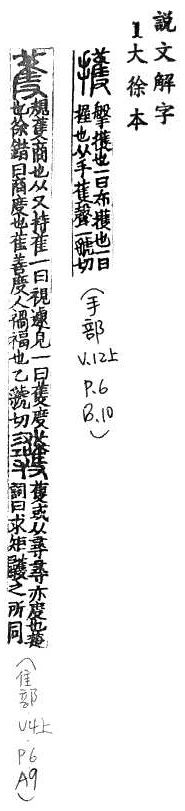 説文解字
1大徐本
擭 擊擭也一曰布擭也一曰
握也从手蒦聲一虢切
(手部
V.12上
P.6
B.10)
蒦 規蒦商也从又持萑一曰視遽見一曰蒦度
也徐鍇曰商度也萑善度人禍福也乙虢切
彠 蒦或从尋尋亦度也楚
詞曰求矩彠之所同
(萑部
V4上
P6
A9)